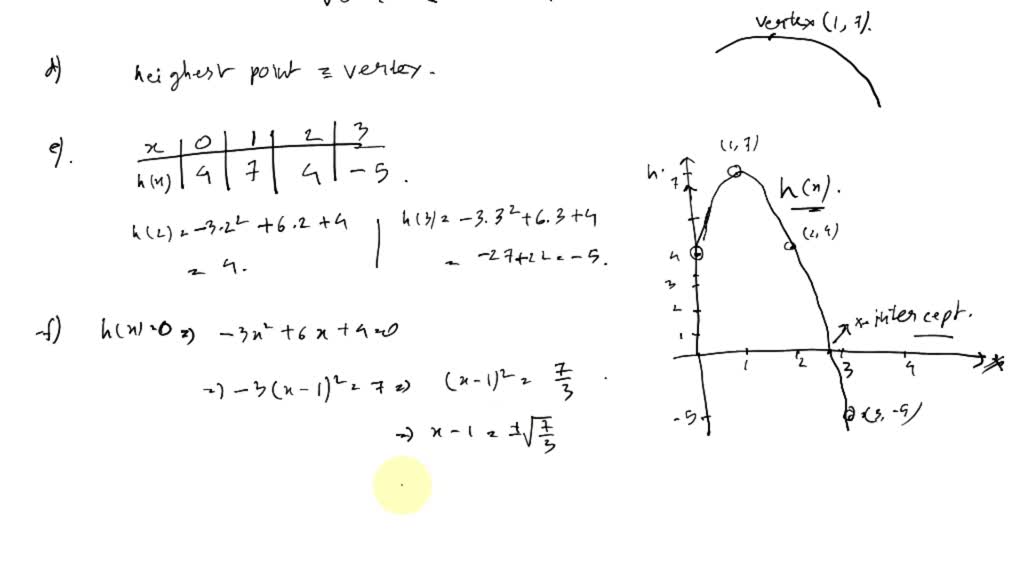 vertex (1, 7).
d) heighest point = vertex.
e). x | 0 | 1 | 2 | 3
h(x) | 4 | 7 | 4 | -5 .
h(2) = -3.2² + 6.2 + 4
= 4.
h(3) = -3.3² + 6.3 + 4
= -27+22 = -5.
f) h(x)=0 => -3x² + 6x + 4 = 0
=> -3(x-1)² = 7 => (x-1)² = 7/3 .
=> x-1 = ±√7/3
(1, 7)
h.
7
h(x).
(2, 4)
4
3
2
1
x-intercept.
1 2 3 4 x
-5
(3, -5)